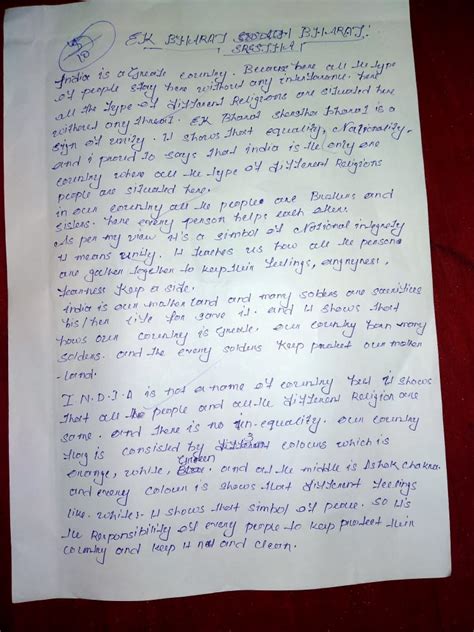 5
10
EK BHARAT SRESTHA BHARAT:
India is a Greate country. Because here all the type
of people stay here without any interferance. here
all the type of different Religions are situated here
without any threat. EK Bharat shrestha bharat is a
sign of unity. It shows that equality, Nationality,
and i proud to says that india is the only one
country where all the type of different Religions
people are situated here.
in our country all the people are Brothers and
sisters. here every person helps each other.
As per my view it's a simbol of National integrety
it means unity. It teaches us how all the persons
are gather together to keep their feelings, angryness,
Keep a side.
India is our mother land and many solders are sacrifices
his/her life for save it. and it shows that
how our country is Greate. our country born many
solders. and the every solders keep protect our mother
-land.
I.N.D.I.A is not a name of country but it shows
that all the people and all the different Religion are
same. and there is no un-equality. our country
flag is consisted by 3 different colours which is
orange, white, Green. and at the middle is Ashok chakra
and every colour is shows that different feelings
like. white:- it shows that simbol of peace. so it's
the Responsibility of every people to keep protect their
country and keep it neat and clean.